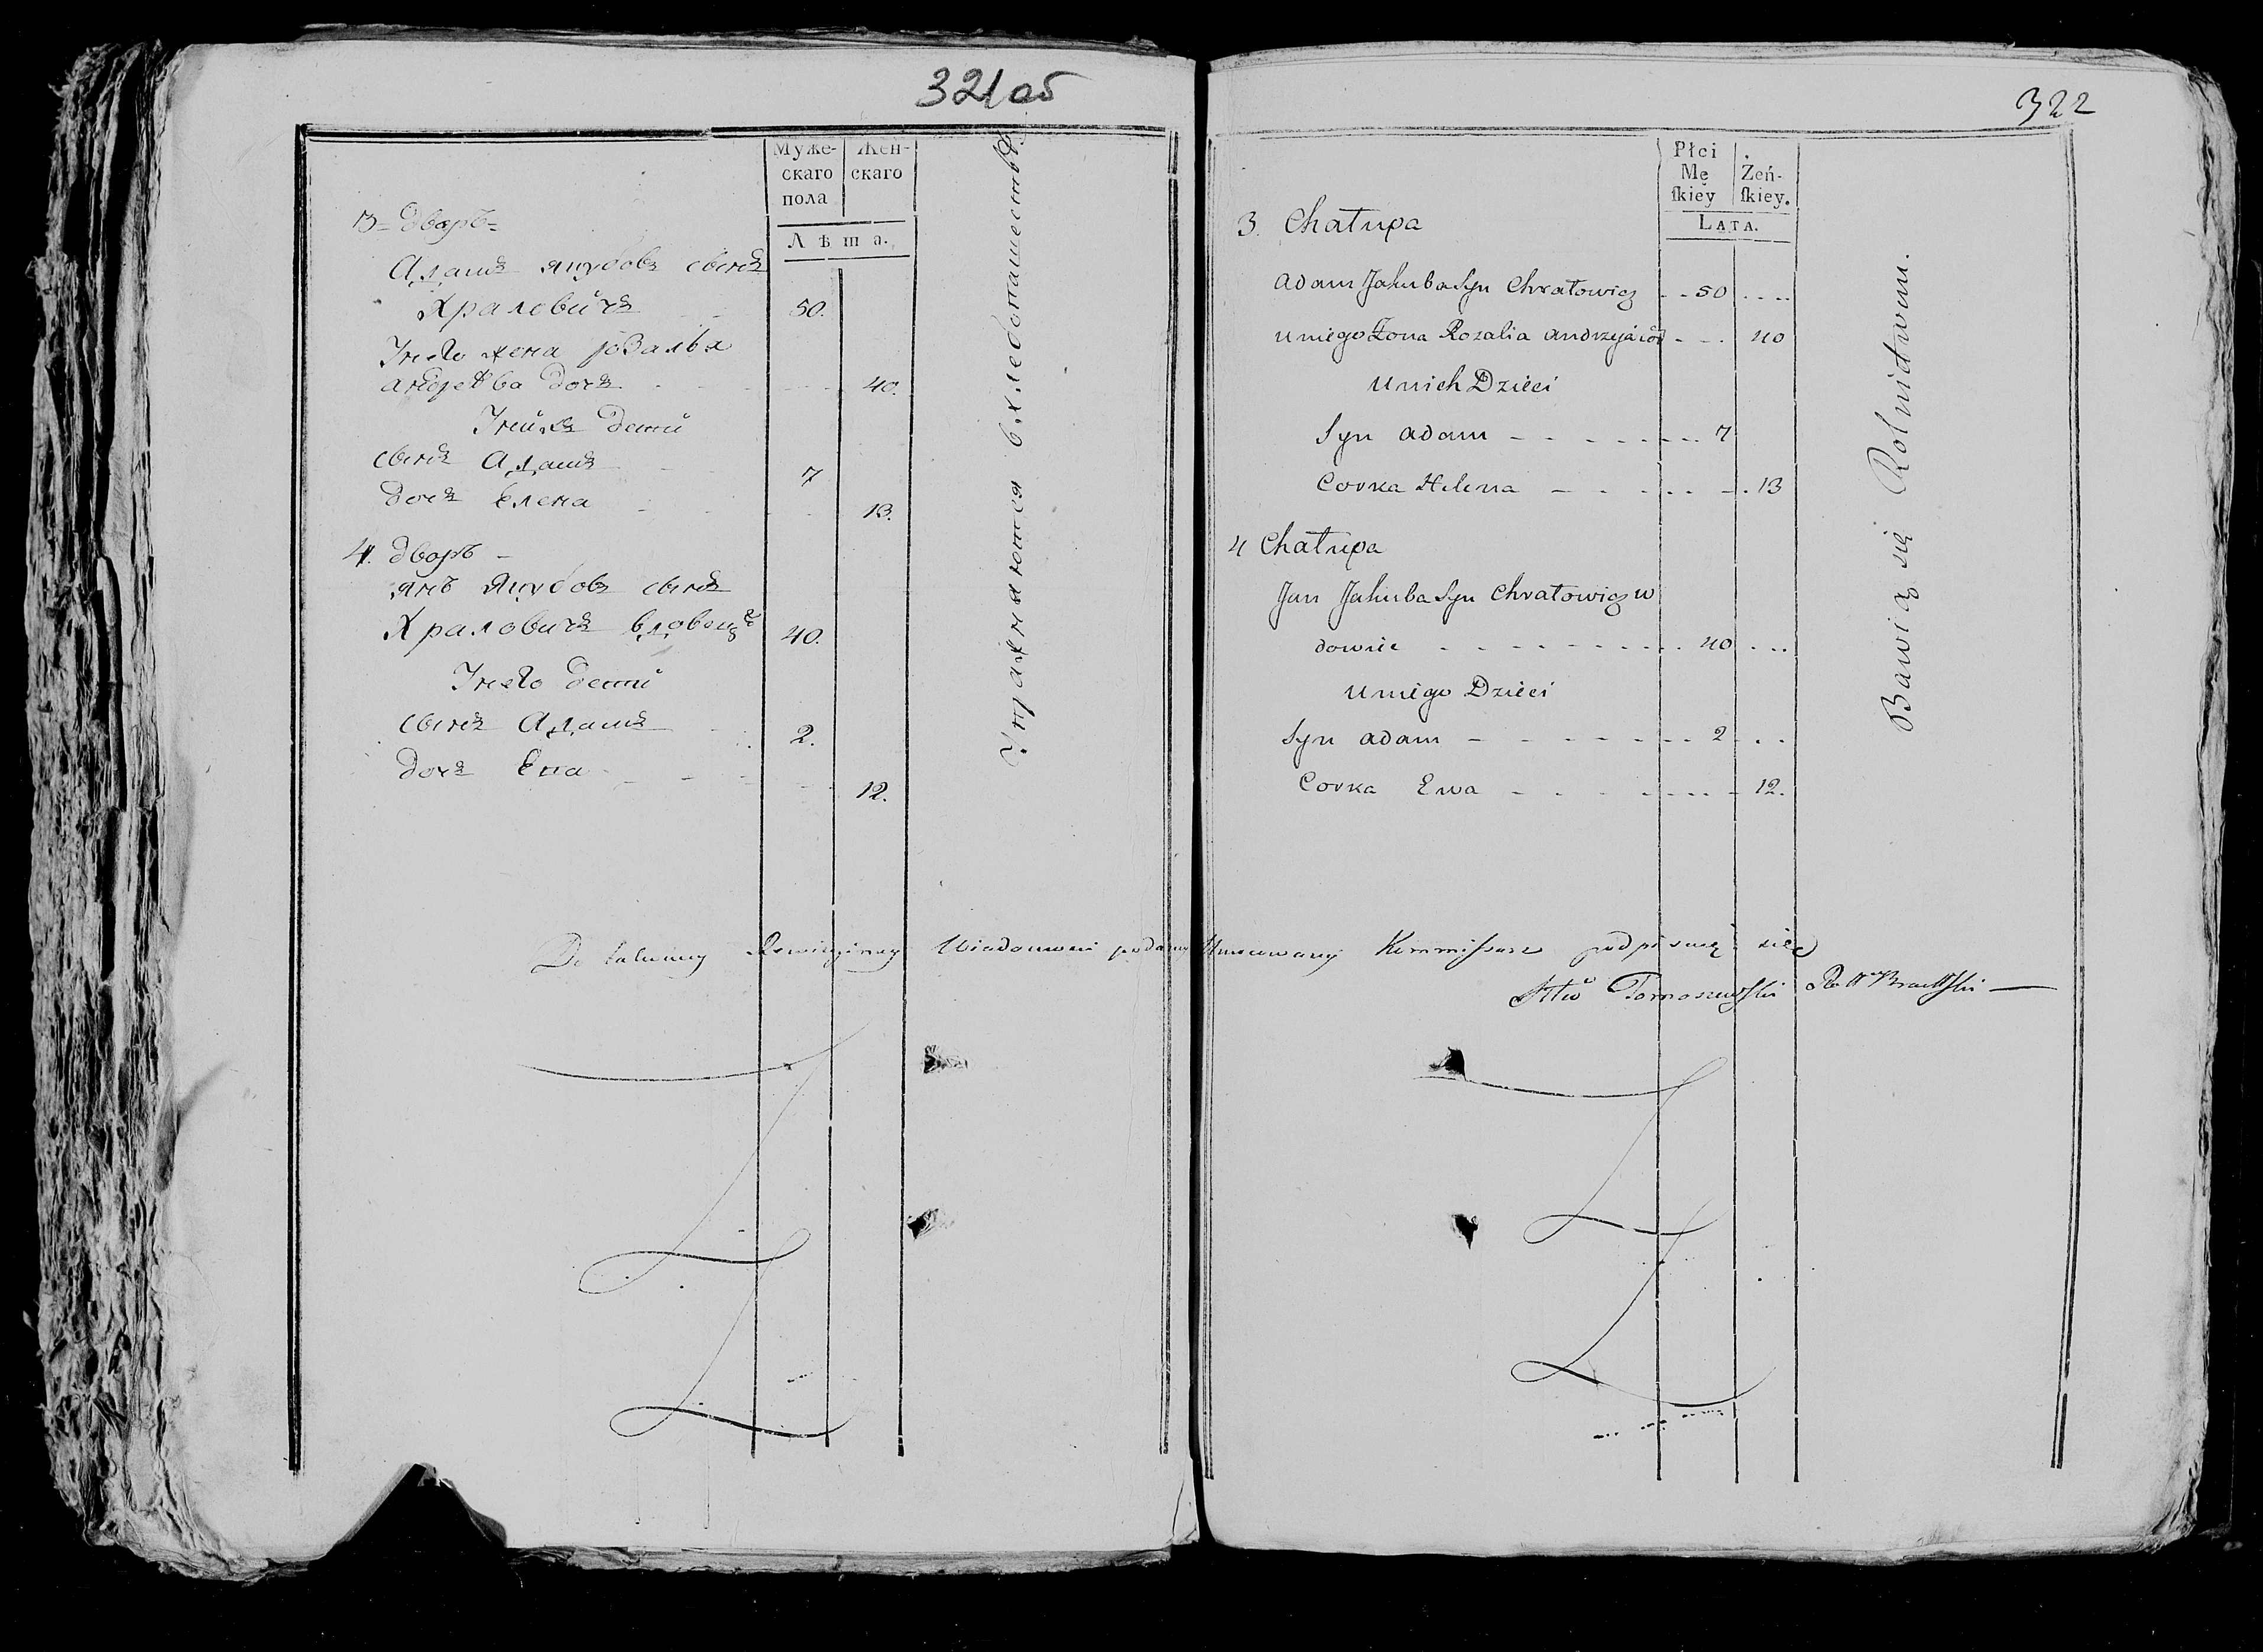 321об
Муже-
скаго
пола
Жен-
скаго
Лѣта.
3= дворъ=
Адамъ якубовъ сынъ
Храловичъ 50.
Унего жена розалья
андреева дочь 40.
Унихъ дети
сынъ Адамъ 7
дочь Елена 13.
4. дворъ
янъ Якубовъ сынъ
Храловичъ вдовецъ 40.
Унего дети
сынъ Адамъ 2.
дочь Ева 12.
Упражняются в хлебопашестве
322
Płci
Mę
skiey
Żeń-
skiey.
LATA.
3. Chałupa
Adam Jakuba Syn Chrałowicz 50
u niego Żona Rozalia Andrzeja 40
u nich Dzieci
Syn Adam 7
Corka Helena 13
4 Chałupa
Jan Jakuba Syn Chrałowicz w
dowiec 40
u niego Dzieci
Syn Adam 2
Corka Ewa 12.
Bawią się Rolnictwem.
Rewizyiney Wiadomosci podany Umocowany Kommissarz podpisuię się
Tomaszewski